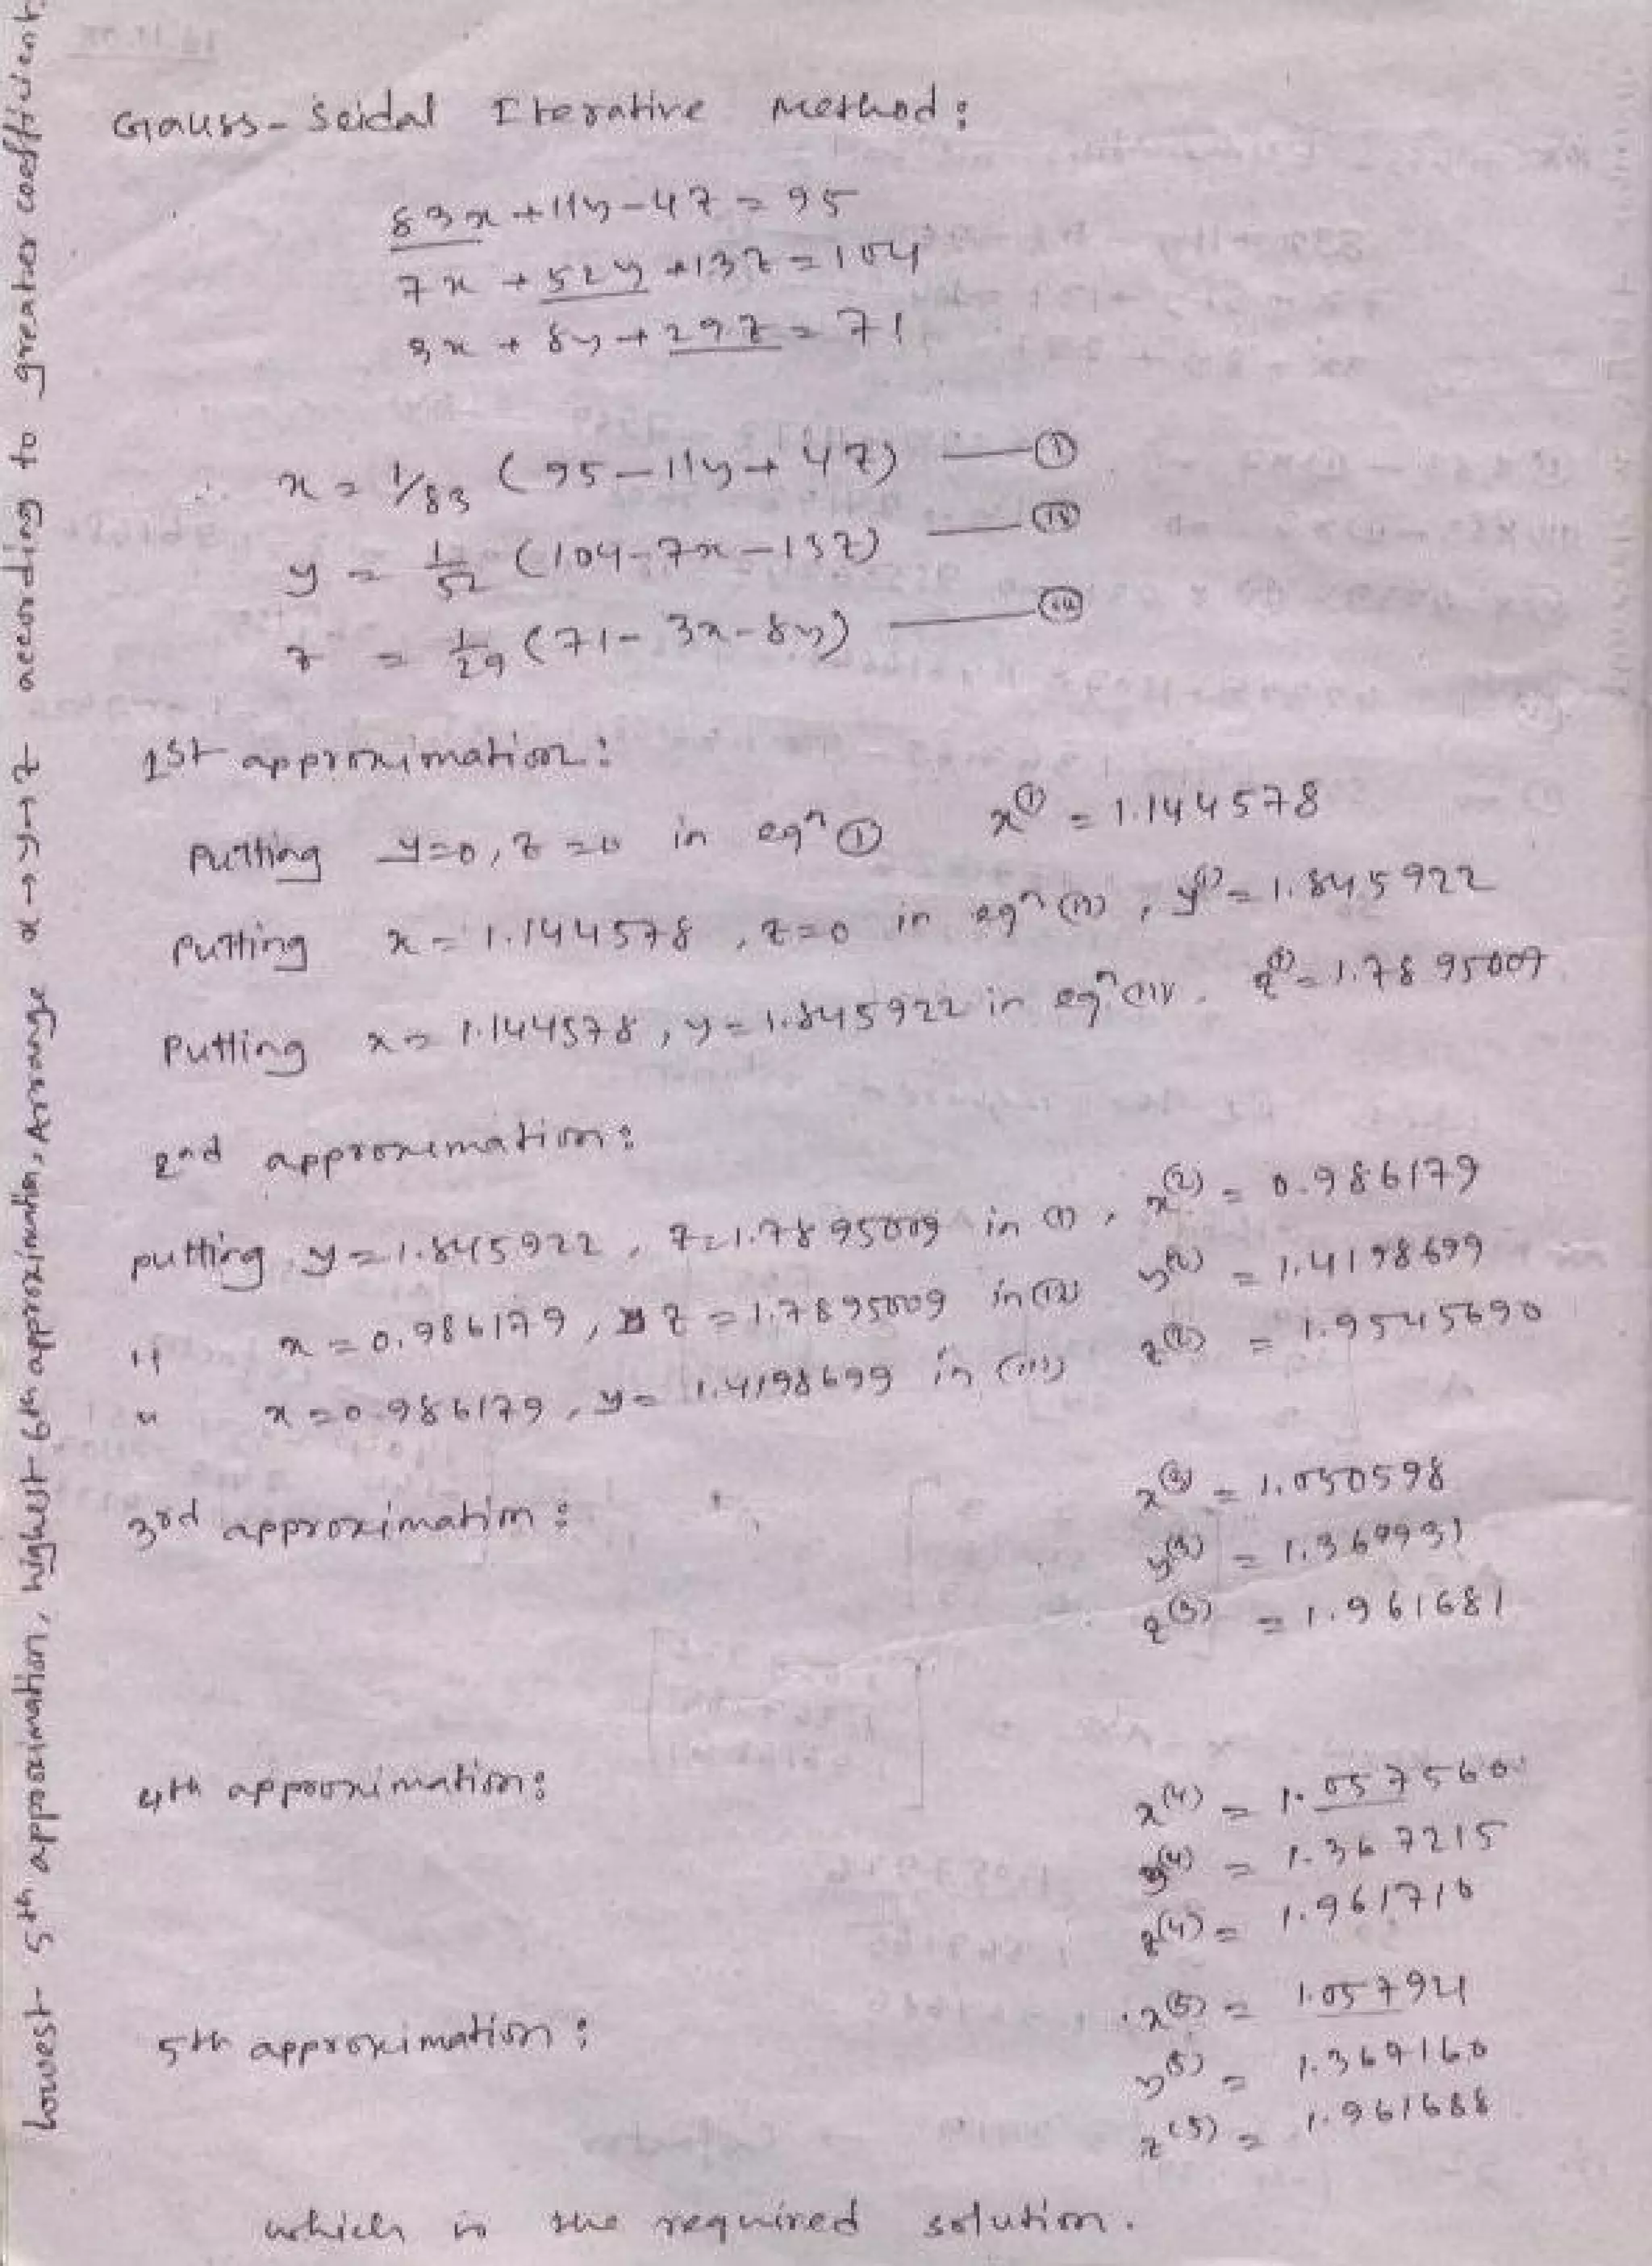 Gauss-Seidal Iterative Method:
83x + 11y - 4z = 95
7x + 52y + 13z = 104
3x + 8y + 29z = 71
∴ x = 1/83 (95 - 11y + 4z) — (i)
y = 1/52 (104 - 7x - 13z) — (ii)
z = 1/29 (71 - 3x - 8y) — (iii)
1st approximation:
Putting y=0, z=0 in eqn (i) x(1) = 1.144578
Putting x = 1.144578, z=0 in eqn (ii), y(1) = 1.845922
Putting x = 1.144578, y = 1.845922 in eqn (iii), z(1) = 1.7895009
2nd approximation:
putting y = 1.845922, z = 1.7895009 in (i), x(2) = 0.986179
" x = 0.986179, z = 1.7895009 in (ii) y(2) = 1.4198699
" x = 0.986179, y = 1.4198699 in (iii) z(2) = 1.9545690
3rd approximation:
x(3) = 1.050598
y(3) = 1.369931
z(3) = 1.961681
4th approximation:
x(4) = 1.057560
y(4) = 1.367215
z(4) = 1.961710
5th approximation:
x(5) = 1.05794
y(5) = 1.367160
z(5) = 1.961688
which is the required solution.
Lowest 5th approximation, highest 6th approximation, Arrange x→y→z according to greater coefficient.